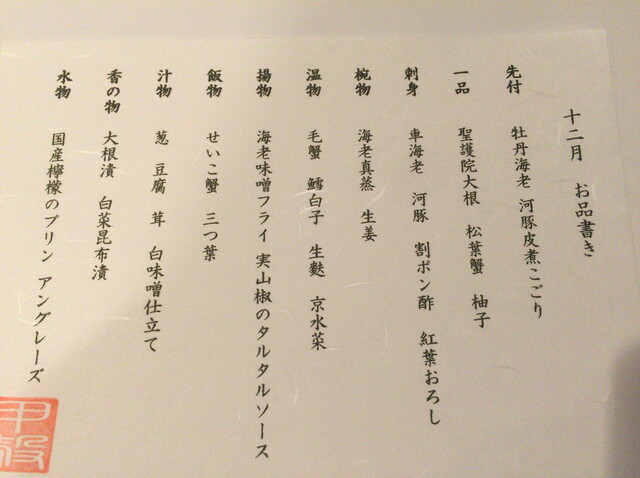 十二月　お品書き
先付　牡丹海老　河豚皮煮こごり
一品　聖護院大根　松葉蟹　柚子
刺身　車海老　河豚　割ポン酢　紅葉おろし
椀物　海老真蒸　生姜
温物　毛蟹　鱈白子　生麩　京水菜
揚物　海老味噌フライ　実山椒のタルタルソース
飯物　せいこ蟹　三つ葉
汁物　葱　豆腐　茸　白味噌仕立て
香の物　大根漬　白菜昆布漬
水物　国産檸檬のプリン　アングレーズ
甲殻